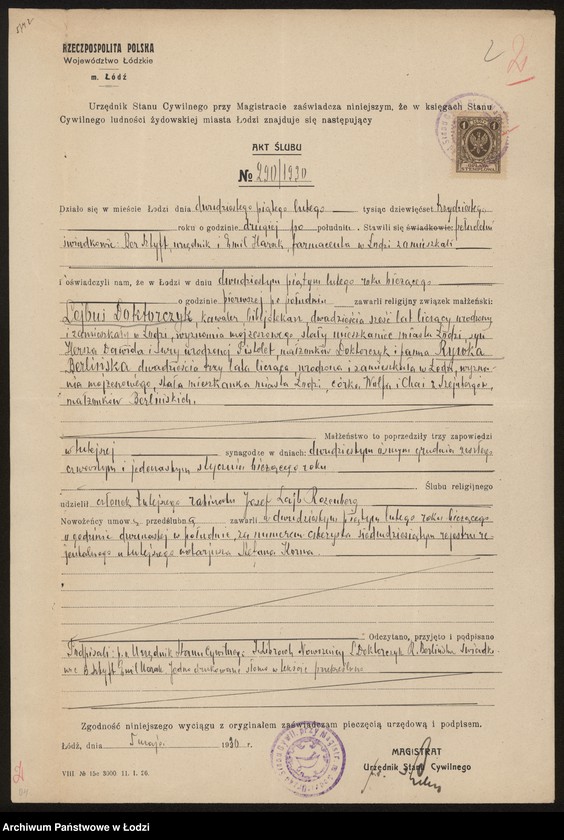 RZECZPOSPOLITA POLSKA
Województwo Łódzkie
m. Łódź
Urzędnik Stanu Cywilnego przy Magistracie zaświadcza niniejszym, że w księgach Stanu
Cywilnego ludności żydowskiej miasta Łodzi znajduje się następujący
AKT ŚLUBU
№ 290/1930
Działo się w mieście Łodzi dnia dwudziestego piątego lutego tysiąc dziewięćset trzydziestego
roku o godzinie drugiej po południu. Stawili się świadkowie: pełnoletni
świadkowie: Ber Sztyft, urzędnik i Emil Harak, farmaceuta w Łodzi zamieszkali
i oświadczyli nam, że w Łodzi w dniu dwudziestym piątym lutego roku bieżącego
o godzinie pierwszej po południu zawarli religijny związek małżeński:
Lejbuś Doktorczyk, kawaler, bibljotekarz, dwadzieścia sześć lat liczący, urodzony
i zamieszkały w Łodzi, wyznania mojżeszowego, stały mieszkaniec miasta Łodzi, syn
Herza Dawida i Sury urodzonej Pistolet, małżonków Doktorczyk i panna Rywka
Berlińska, dwadzieścia trzy lata licząca, urodzona i zamieszkała w Łodzi, wyzna-
nia mojżeszowego, stała mieszkanka miasta Łodzi, córka Wolfa i Chai z
małżonków Berlińskich.
Małżeństwo to poprzedziły trzy zapowiedzi
w tutejszej synagodze w dniach: dwudziestym ósmym grudnia zeszłego
czwartym i jedenastym stycznia bieżącego roku
Ślubu religijnego
udzielił członek tutejszego rabinatu Josef Lajb Rozenberg
Nowożeńcy umowę przedślubną zawarli dwudziestym piątym lutego roku bieżącego
o godzinie dwunastej w południe, za numerem czterysta siedmdziesiątym rejestru re-
jentalnego u tutejszego notarjusza Stefana Korna.
Odczytano, przyjęto i podpisano
Podpisali: p.o. Urzędnik Stanu Cywilnego Nowożeńcy L. Doktorczyk R. Berlińska Świadko-
wie B. Sztyft Emil Harak. Jedno drukowane słowo w tekście przekreślono
Zgodność niniejszego wyciągu z oryginałem zaświadczam pieczęcią urzędową i podpisem.
Łódź, dnia 5 marca 1930 r.
MAGISTRAT
Urzędnik Stanu Cywilnego
VIII № 15c 3000 11. 1. 26.
Archiwum Państwowe w Łodzi